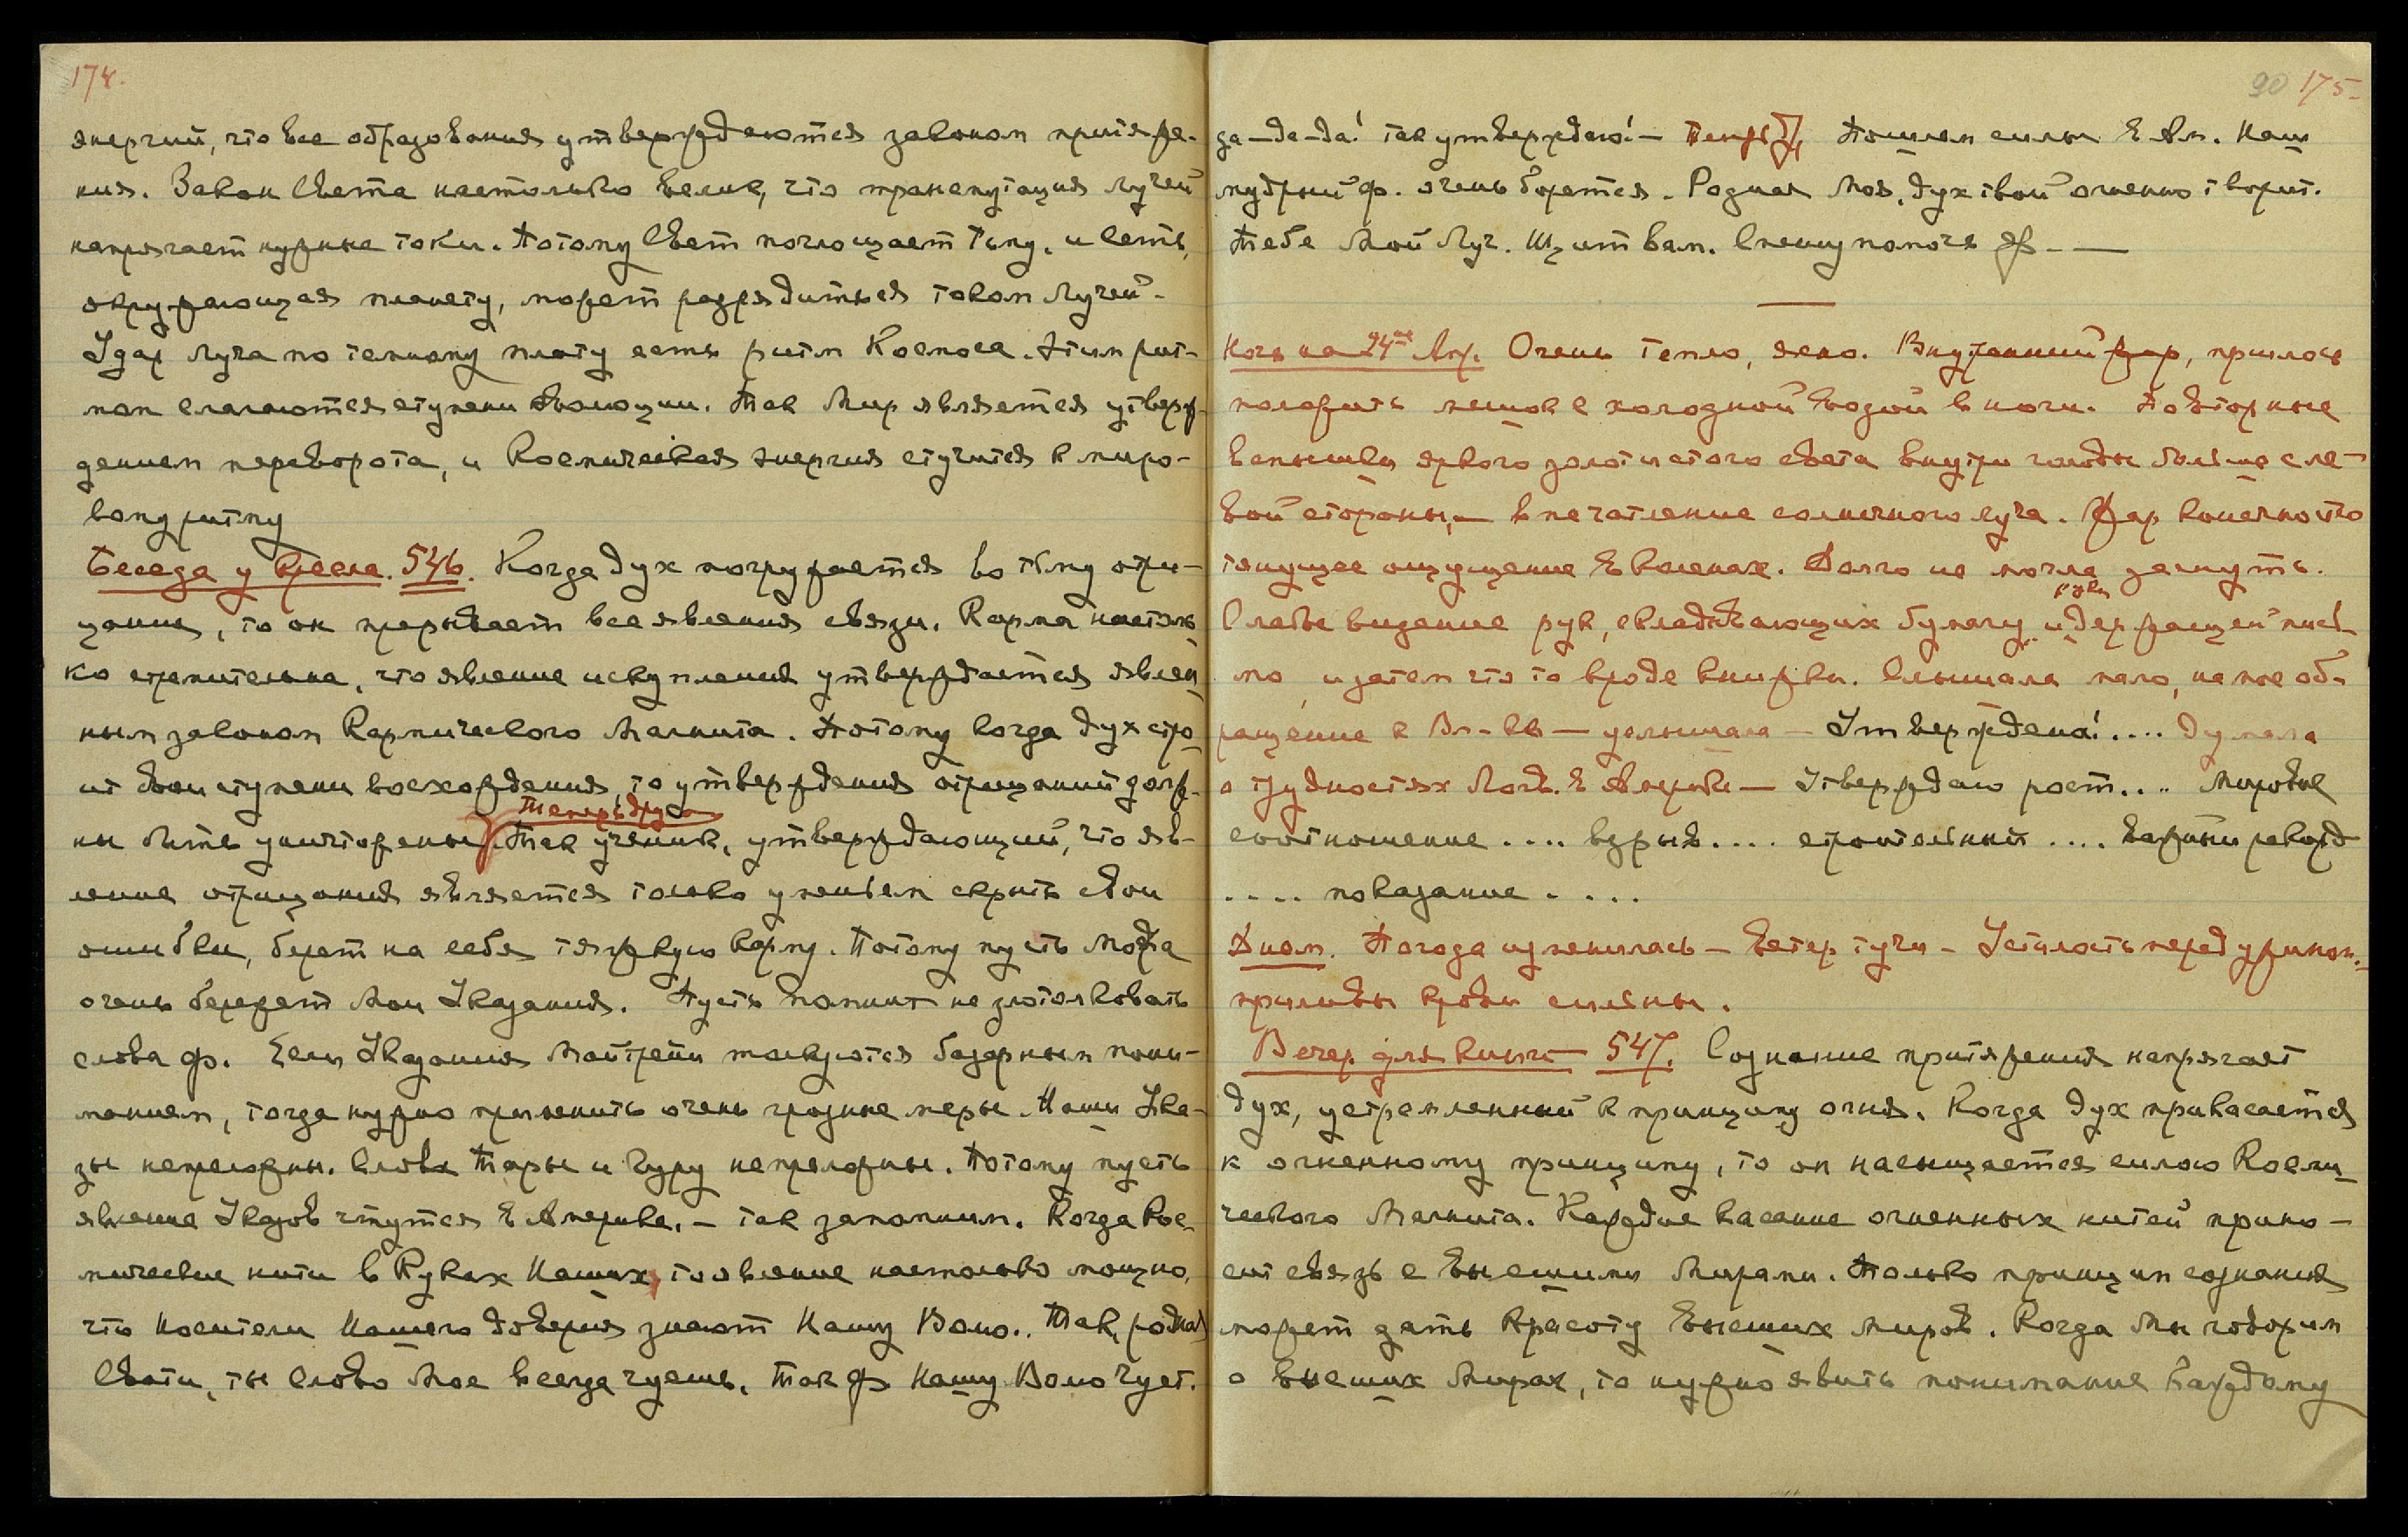 174.
энергий, что все образования утверждаются законом притяже-
ния. Закон Света настолько велик, что трансмутация лучей
напрягает нужные токи. Потому Свет поглощает Тьму, и сеть,
окружающая планету, может разрядиться током Лучей.
Удар луча по темному плоту есть ритм Космоса. Этим рит-
мом слагаются ступени эволюции. Так Мир является утверж-
дением переворота, и Космическая энергия стучится к миро-
вому ритму
Беседа у кресла. 546. Когда дух погружается во тьму отри-
цания, то он прерывает все явления связи. Карма настоль
ко стремительна, что явление искупления утверждается явлен
ным законом Кармического Магнита. Потому когда дух стро
ит свои ступени восхождения, то утверждения отрицаний долж-
Теперь другое
ны быть уничтожены. Так ученик, утверждающий, что яв-
ление отрицания является только умением скрыть свои
ошибки, берет на себя тяжкую карму. Потому пусть Модра
очень бережет Мои Указания. Пусть помнит не злотолковать
слова ф. Если Указания Майтрейи толкуются базарным пони-
манием, тогда нужно применить очень грозные меры. Наши Ука-
зы непреложны. Слова Тары и Гуру непреложны. Потому пусть
явление Указов чтутся в Америке. – так запомним. Когда кос-
мические нити в Руках Наших, то явление настолько мощно,
что носители Нашего доверия знают Нашу Волю.. Так, родная
Свати, ты слово Мое всегда чуешь, так ф Нашу Волю чует.
90 175-
да-да-да! так утверждаю! – Пошлем силы в Ам. Наш
мудрый ф. очень борется. Родная Моя, дух твой огненно творит.
Тебе Мой Луч. Щит вам. Спешу помочь ф. —
Ночь на 24ое Апр. Очень тепло, ясно. Внутренний жар, пришлось
положить мешок с холодной водой в ноги. Повторные
вспышки яркого золотистого света внутри головы больше с ле-
вой стороны, – впечатление солнечного луча. Жар конечностей
тянущее ощущение в коленах. Долго не могла заснуть.
руки
Слабое видение рук, складывающих бумагу и держащей пись
мо, и затем что то вроде книжки. Слышала мало, на мое об-
ращение к Вл-ке – услышала – Утверждена!.... Думала
о трудностях Логв. в Америке – Утверждаю рост.... Мировое
соотношение .... взрыв .... строительный .... важный рекорд
.... показание ....
Днем. Погода изменилась – ветер тучи – Усталость перед ужином.
приливы крови сильны.
Вечер для книги 547. Сознание притяжения напрягает
дух, устремленный к принципу огня. Когда дух прикасается
к огненному принципу, то он насыщается силою Косми
ческого Магнита. Каждое касание огненных нитей прино-
сит связь с Высшими Мирами. Только принцип сознания
может дать красоту Высших Миров. Когда Мы говорим
о Высших Мирах, то нужно явить понимание каждому